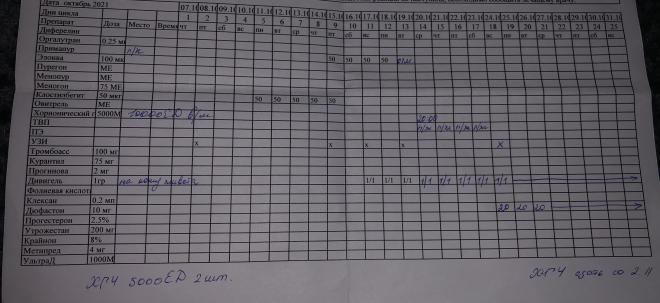 Дата октябрь 2021 07.10 08.10 09.10 10.10 11.10 12.10 13.10 14.10 15.10 16.10 17.10 18.10 19.10 20.10 21.10 22.10 23.10 24.10 25.10 26.10 27.10 28.10 29.10 30.10 31.10
Дни цикла 1 2 3 4 5 6 7 8 9 10 11 12 13 14 15 16 17 18 19 20 21 22 23 24 25
Препарат Доза Место Время чт пт сб вс пн вт ср чт пт сб вс пн вт ср чт пт сб вс пн вт ср чт пт сб вс
Диферелин
Оргалутран 0.25 м
Примапур п/к
Элонва 100 мк 50 50 50 50
Пурегон МЕ
Менопур МЕ
Меногон 75 МЕ
Клостилбегит 50 мкг 50 50 50 50 50
Овитрель МЕ
Хорионический г 5000М 10000ЕД в/м 20.00
ТВП п/ж п/ж п/ж п/ж
ПЭ
УЗИ х х х х х
Тромбоасс 100 мг
Курантил 75 мг
Прогинова 2 мг
Дивигель 1гр на кожу живота 1/1 1/1 1/1 1/1 1/1 1/1 1/1 1/1 1/1
Фолиевая кислота
Клексан 0.2 мл
Дюфастон 10 мг 20 20 20
Прогестерон 2.5%
Утрожестан 200 мг
Крайнон 8%
Метипред 4 мг
УльтраД 1000М
ХГЧ 5000ЕД 2 шт. ХГЧ сдать со 2.11